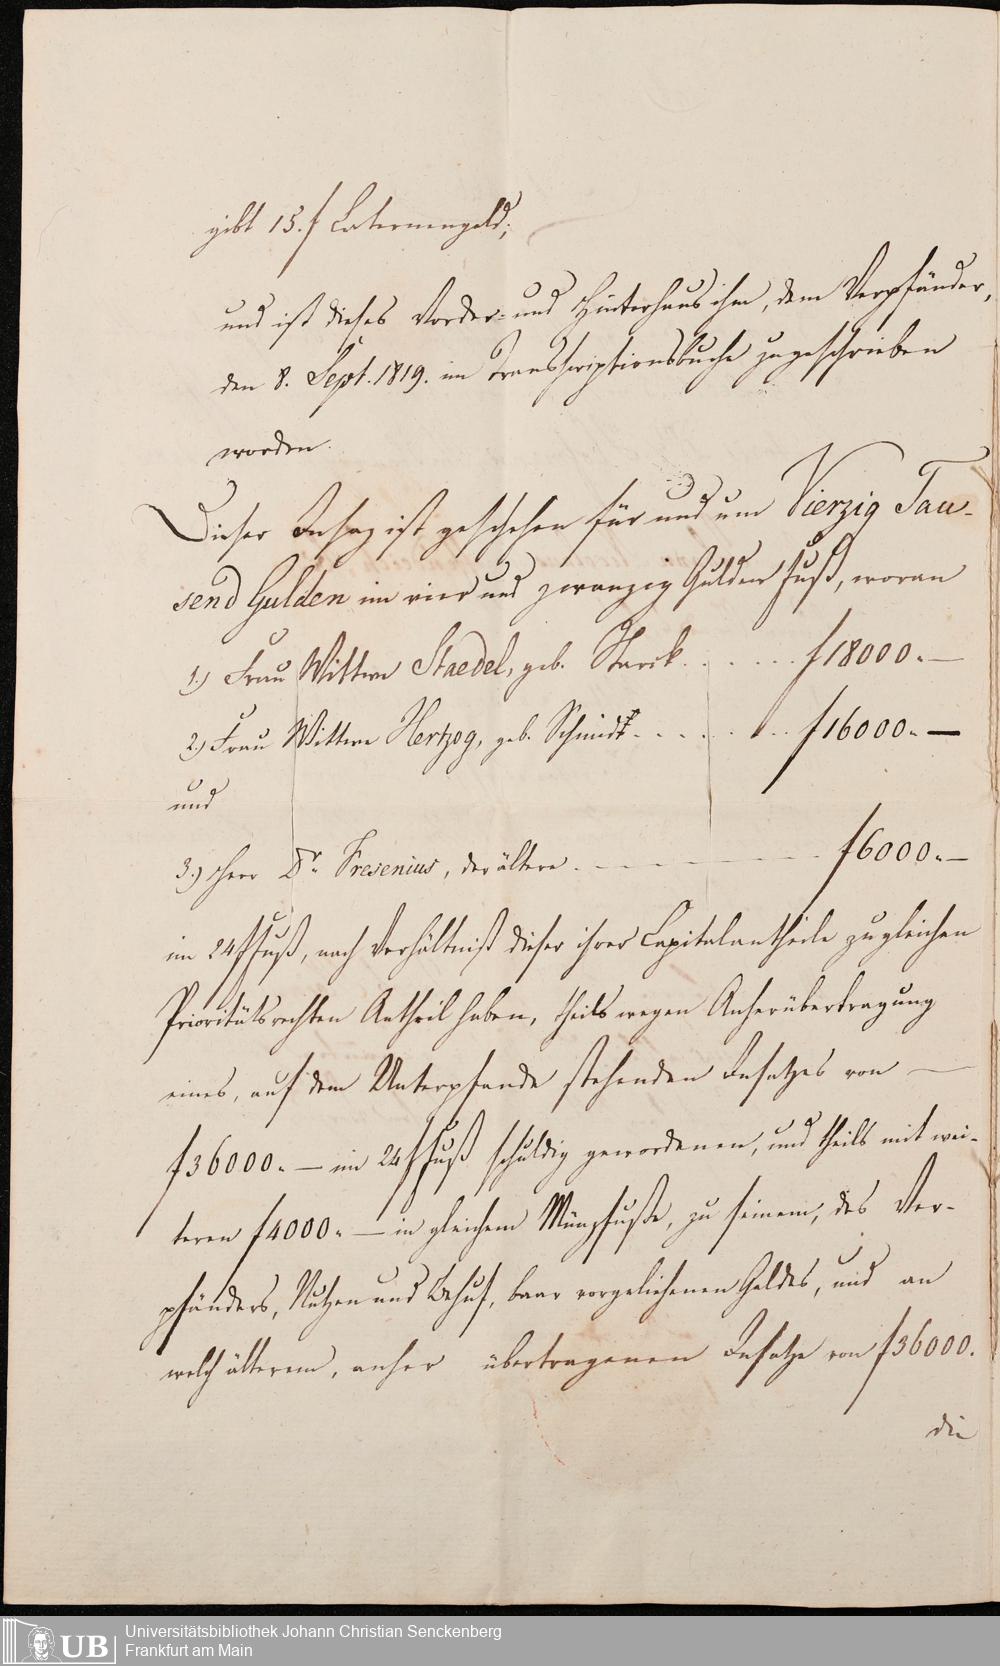 gibt 15. f Laternengeld;
und ist dieses Vorder- und Hinterhaus ihm, dem Verpfänder,
den 8. Sept. 1819. im Transscriptionsbuche zugeschrieben
worden.
Dieser Insaz ist geschehen für und um Vierzig Tau-
send Gulden im vier und zwanzig Gulden Fuß, woran
1.) Frau Wittwe Staedel, geb. Starck . . . . . . f 18000. —
2.) Frau Wittwe Hertzog, geb. Schmidt . . . . . . f 16000. —
und
3.) Herr Dr. Fresenius, der ältere . — — — — f 6000. —
im 24 f Fuß, nach Verhältniß dieser ihrer Capitalantheile zu gleichen
Prioritätsrechten Antheil haben, theils wegen Anherübertragung
eines, auf dem Unterpfande stehenden Insatzes von —
f 36000. — im 24 f Fuß schuldig gewordenen, und theils mit wei-
teren f 4000. — in gleichem Münzfuße, zu seinem, des Ver-
pfänders, Nutzen und Behuf, baar vorgeliehenen Geldes, und an
welch älterem, anher übertragenen Insatze von f 36000.
die
Universitätsbibliothek Johann Christian Senckenberg
Frankfurt am Main
UB